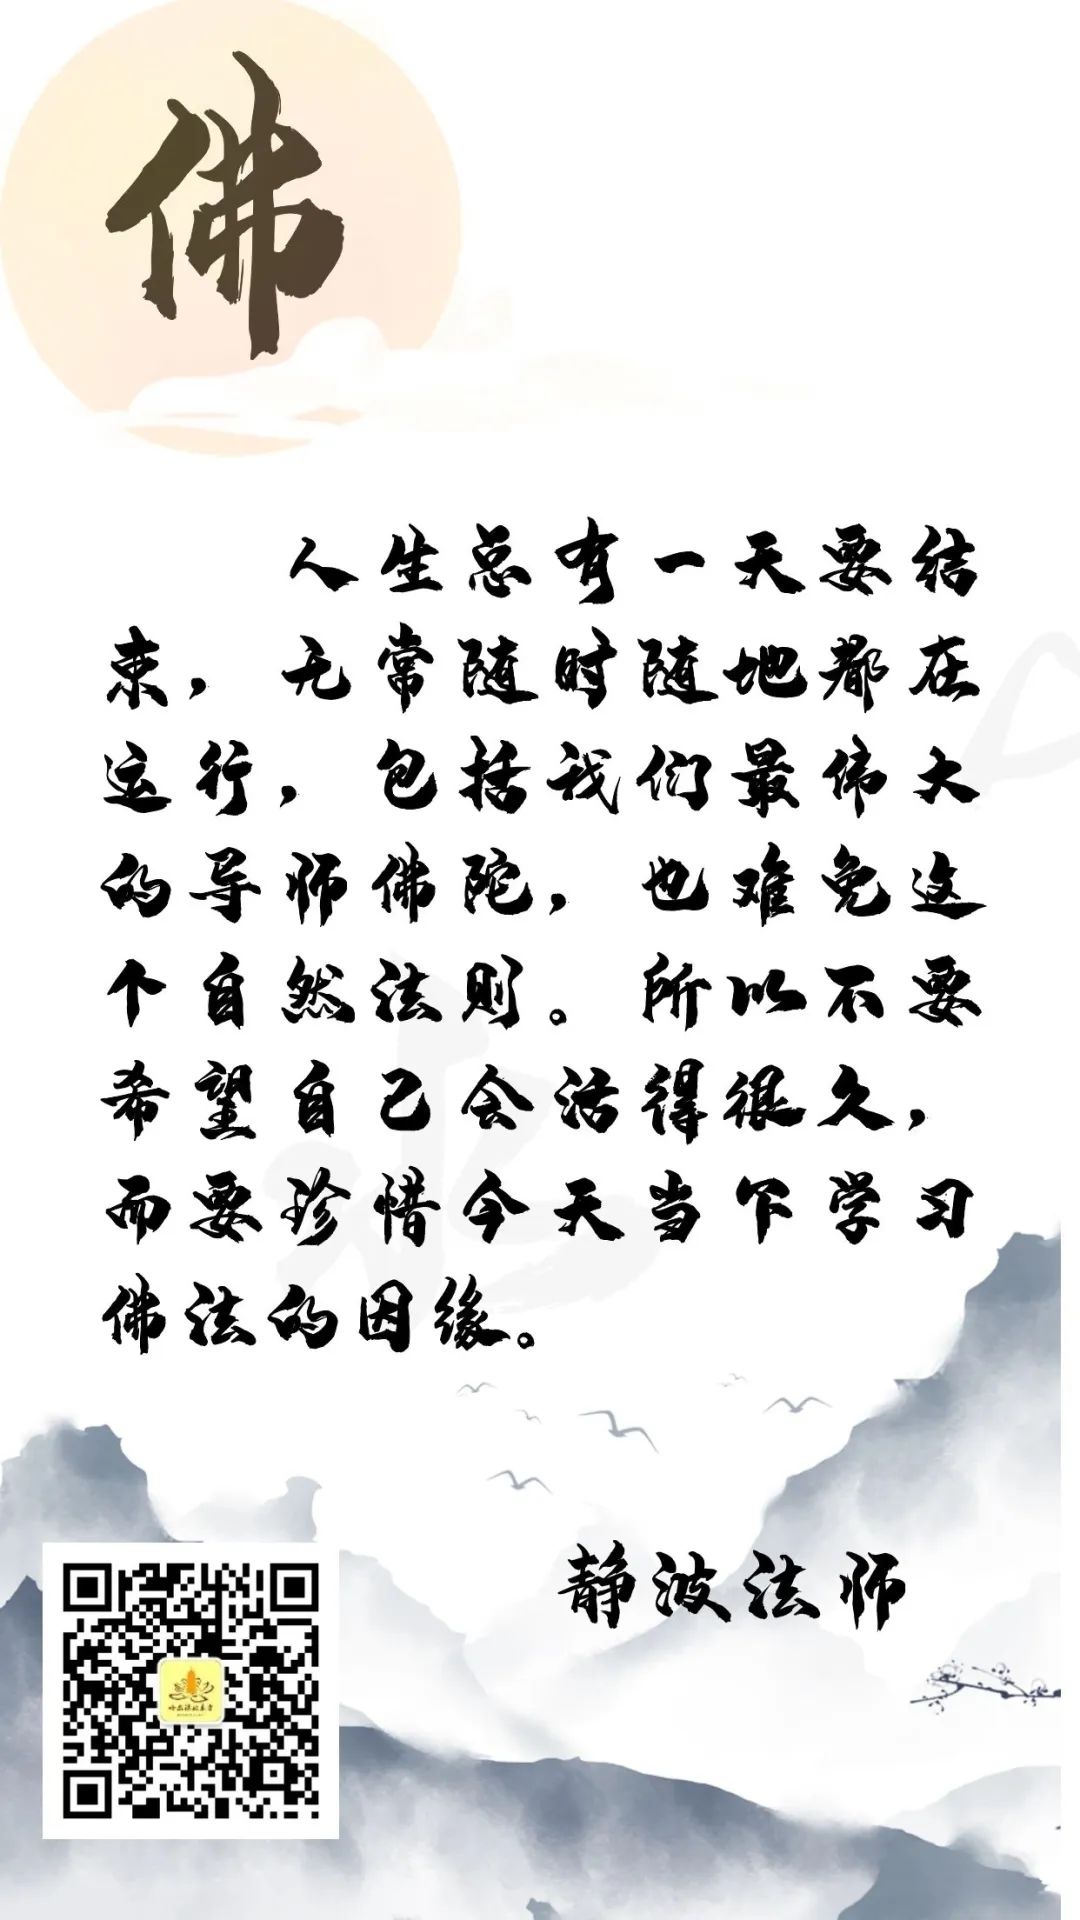 佛
人生总有一天要结
束，无常随时随地都在
运行，包括我们最伟大
的导师佛陀，也难免这
个自然法则。所以不要
希望自己会活得很久，
而要珍惜今天当下学习
佛法的因缘。
静波法师